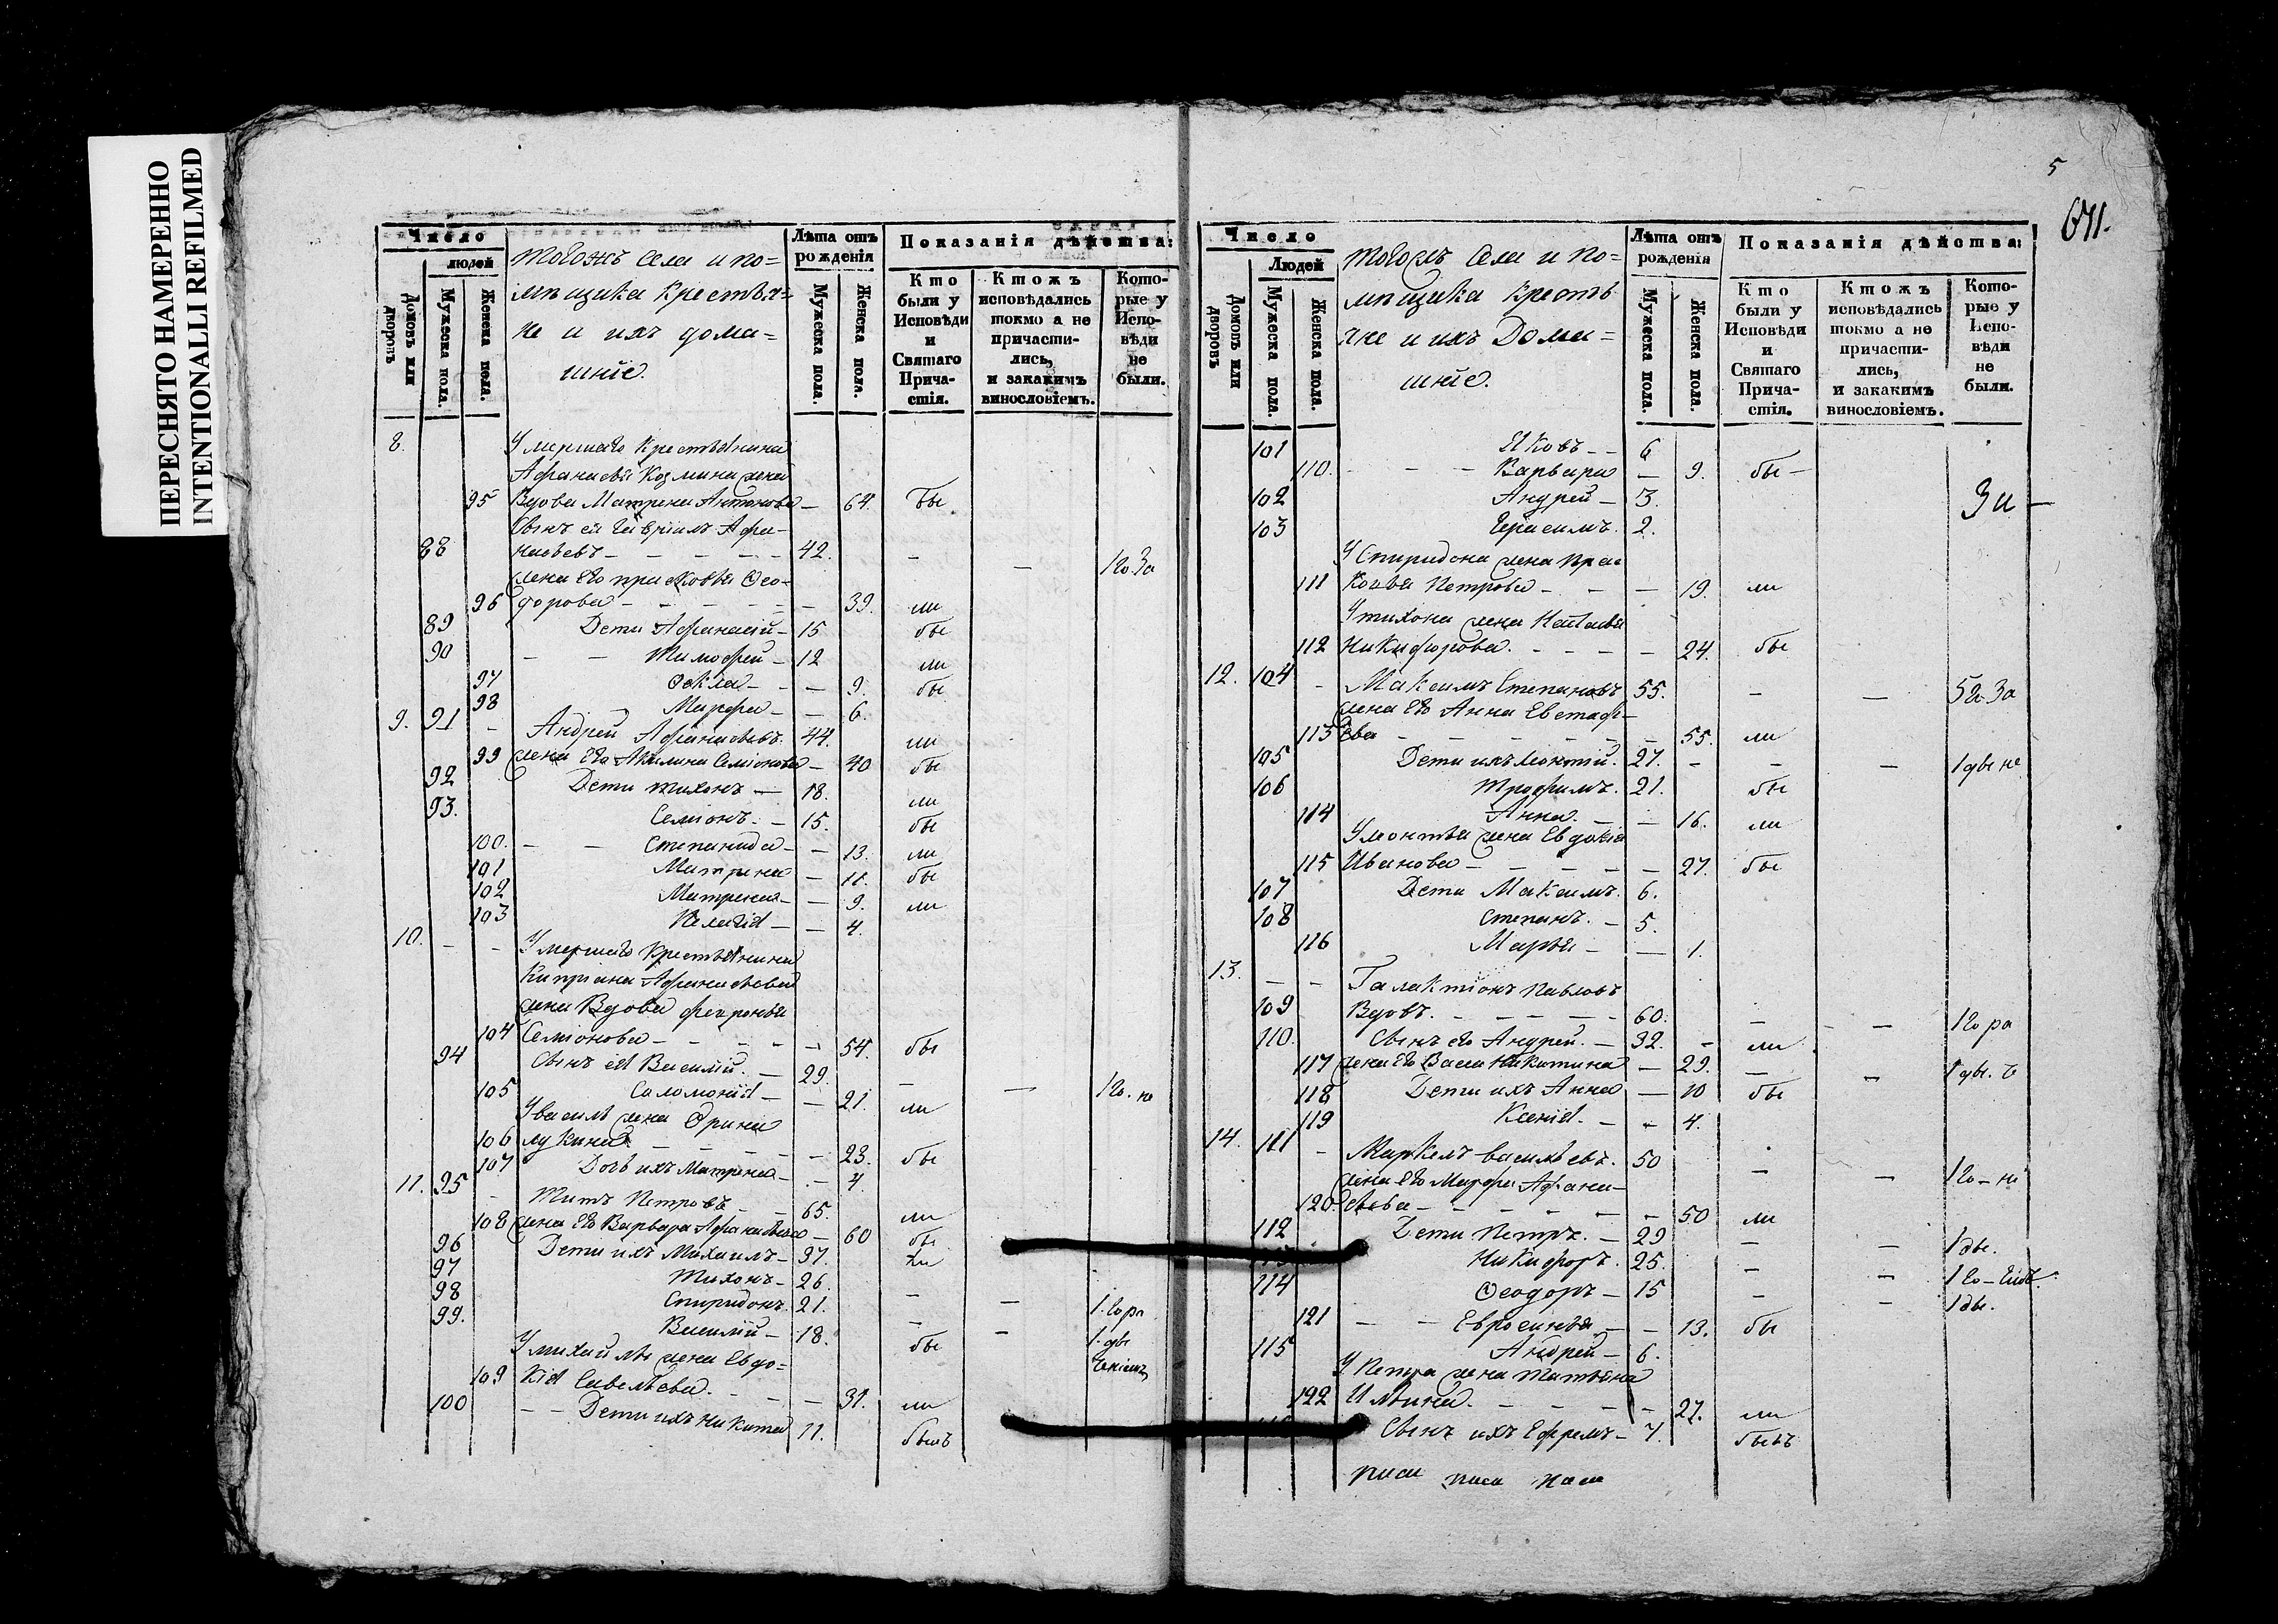 ПЕРЕСНЯТО НАМЕРЕННО
INTENTIONALLI REFILMED
Число
людей
Домовъ или дворовъ
Мужеска пола.
Женска пола.
тогожъ села и по=
мѣщика крестья=
не и ихъ дома=
шніе.
Лѣта отъ рожденія
Мужеска пола.
Женска пола.
Показанія дѣйства:
Кто были у Исповѣди и Святаго Причастія.
Ктожъ исповѣдались токмо а не причастились, и закакимъ винословіемъ.
Которые у Исповѣди не были.
8. Умершаго крестьянина
Афанасья Козмина жена
95 Вдова Матрена Антонова — 64. бы
Сынъ ея Гаврiилъ Афа-
88 насьевъ — 42. — — 1го За
жена его прасковья Ѳео-
96 дорова — 39. ли
89 Дети Афанасiй — 15 бы
90 — — Тимофей — 12 ли
97 Ѳекла — — 9. бы
98 Марфа — — 6.
9. 91 — Андрей Афанасьевъ. 44. ли
99 жена его Акилина Семiонова — 40 бы
92 Дети тихонъ — 18. ли
93. Семiонъ. — 15. бы
100. — — Степанида — — 13. ли
101 Матрена — 11. бы
102 Матрена — — 9. ли
103 Пелагiя — — 4.
10. — — Умершаго Крестьянина
Киприана Афанасьева
жена Вдова феѵронья
104 Семiонова — 54. бы
94 Сынъ ея Василiй. — 29. — — 1го. но
105 Саломонiя — — 21. ли
У василья жена Ѳрина
106 лукина. — 23. бы
107 Дочь ихъ Матрена — — 4.
11. 95 — Титъ Петровъ — 65. ли
108 жена его Варвара Афанасьева — 60 бы
96 Дети ихъ Михаилъ — 37. ли
97 Тихонъ — 26. — — 1. го ра
98 Спиридонъ. 21. — — 1. дѣ
99. Василiй — 18. бы
У михайлы жена Евдо=
109 кiя Савельева. — 31. ли
100 — — Дети ихъ Никита 11. былъ
5
671.
Число
Людей
Домовъ или дворовъ
Мужеска пола.
Женска пола.
тогожъ села и по=
мѣщика крестья
не и ихъ Дома=
шнiе.
Лѣта отъ рожденія
Мужеска пола.
Женска пола.
Показанія дѣйства:
Кто были у Исповѣди и Святаго Причастія.
Ктожъ исповѣдались токмо а не причастились, и закакимъ винословіемъ.
Которые у Исповѣди не были.
101 Яковъ — — 6
110. — — Варвара — 9. бы —
102 Андрей — 3. За —
103 Герасимъ. 2.
У Спиридона жена Прас
111 ковья Петрова — — — 19. ли
У тихона жена Наталья
112 Никифорова. — 24. бы
12. 104 — Максимъ Степановъ 55. — — 5го За
жена его Анна Евстафi-
113 ева — 55. ли
105 Дети ихъ леонтiй. 27. — — — 1 дѣ не
106 Трофимъ. 21. бы
114 Анна. — — 16. ли
У леонтья жена Евдокiя
115 Иванова — 27. бы
107 Дети Максимъ. 6.
108 Степанъ. — 5.
116 Марья — — 1.
13. — — Галактiонъ Павловъ
109 Вдовъ. — 60. — — 1го ра
110. Сынъ его Андрей. — 32. — ли
117 жена его Васса Никитина — 29. — — 1 дѣ.
118 Дети ихъ Анна — 10 бы
119 Ксенiя. — — 4.
14. 111 — Маркелъ васильевъ. 50 — — 1го — не
жена его Марфа Афана-
120. сьева — 50 ли
112 Дети Петръ. — 29 — — 1 дѣ.
Никифоръ. 25. — — 1
114 Ѳеодоръ — 15 — — 1 дѣ.
121 — — Евросинья — — 13. бы
115 Андрей — 6.
У Петра жена татьяна
122 Ильина. — 27. ли
Сынъ ихъ Ефремъ — 7. бывъ